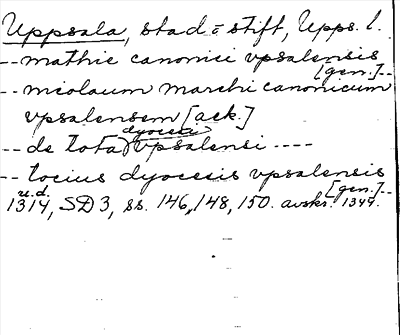 Uppsala, stad o stift, Upps. l.
-- mathie canonici vpsalensis [gen.]--
-- nicolaum marchi canonicum
vpsalensem [ack.]
-- de tota dyocesi vpsalensi ----
-- tocius dyocesis vpsalensis [gen.]--
u.d. 1314, SD 3, ss. 146, 148, 150. avskr. 1344.